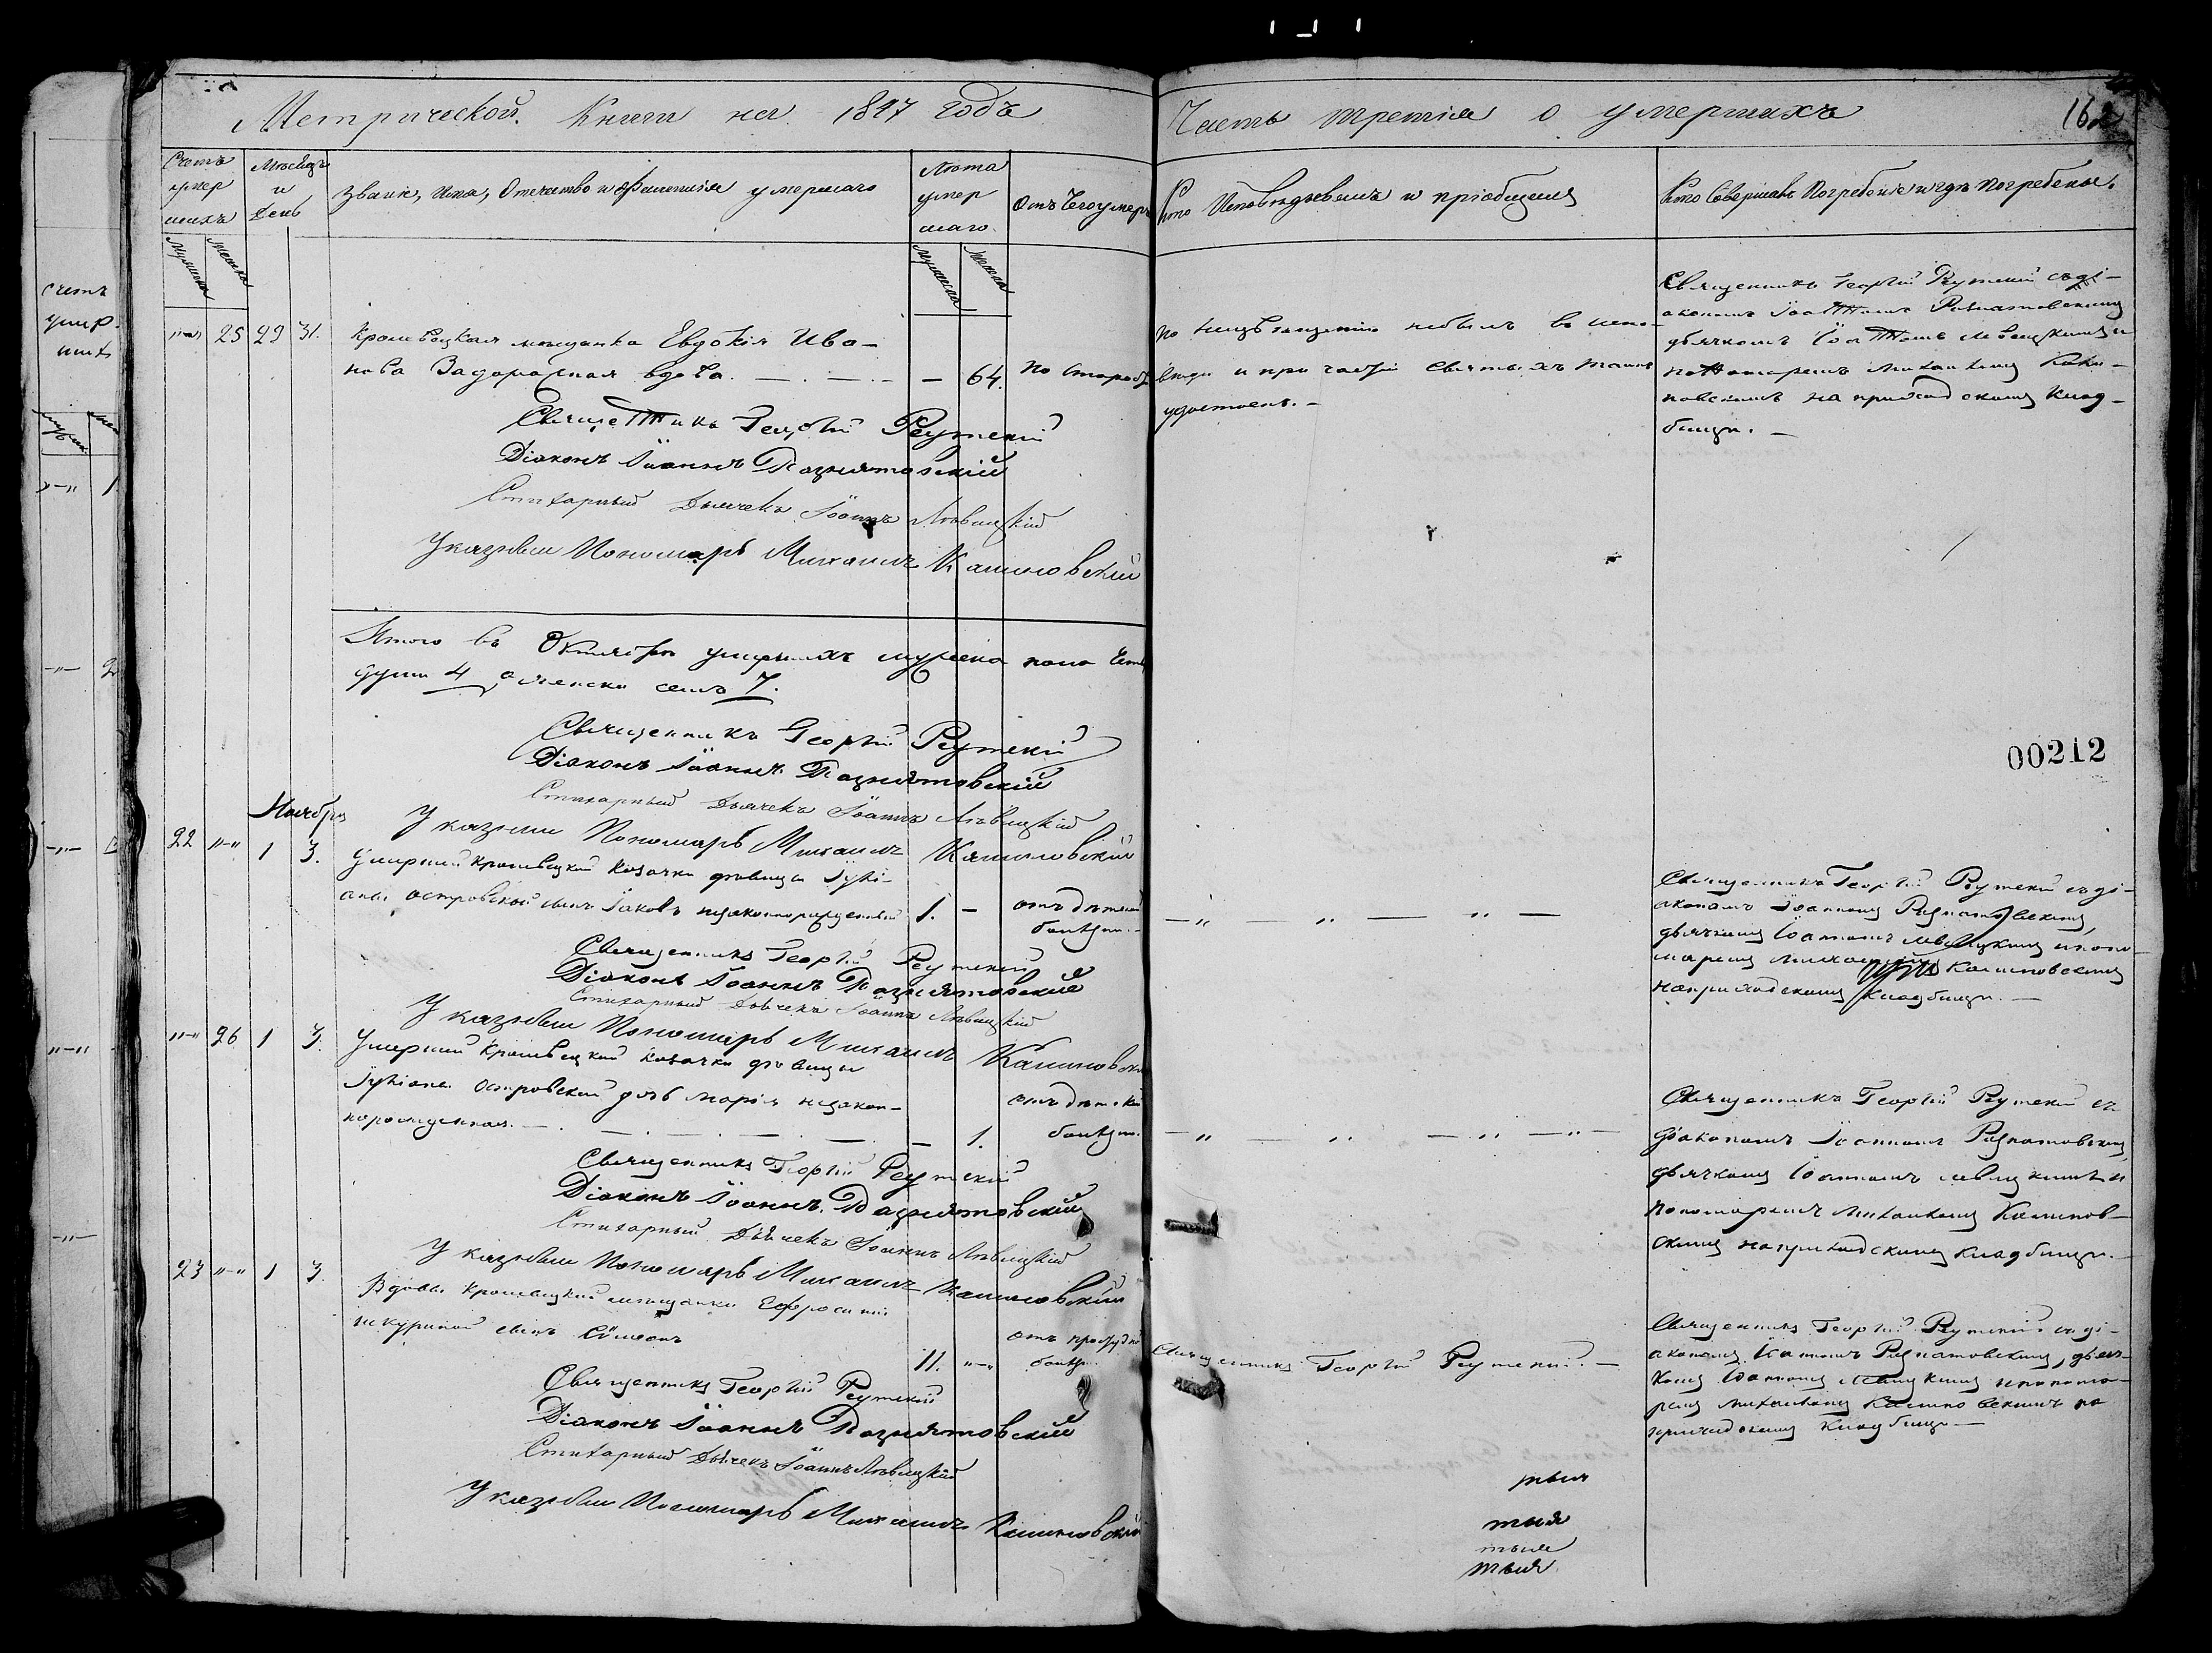 Метрической Книги на 1847 годъ
Часть третія о умершихъ
162
Счетъ умер шихъ
Мѣсяцъ и День
Званіе, Имя, Отечество и Фамилія умершаго
Лѣта умер шаго
Отъ Чего умеръ
Кто Исповѣдывалъ и пріобщалъ
Кто Совершалъ Погребеніе и гдѣ погребены.
Мужеска
Женска
Мужеска
Женска
25 29 31.
Кролевецкая мещанка Евдокія Ива-
нова вдова. — 64.
по
удостоенъ. —
Священникъ Георгій Рутскій съ ді-
акономъ
дьячкомъ
пономаремъ Михаиломъ
на приходскомъ клад-
бищѣ. —
Священникъ Георгій Реутскій
Діаконъ Іоаннъ Разнятовскій
Стихарный Дьячекъ Іоаннъ Лѣвицкій
Указный Пономарь Михаилъ Калиновскій
Итого въ Октябрѣ умершихъ мужеска пола
души 4, а женска семь 7.
Священникъ Георгій Реутскій
Діаконъ Іоаннъ Разнятовскій
Стихарный Дьячекъ Іоаннъ Лѣвицкій
Указный Пономарь Михаилъ Калиновскій
00212
Ноября
22 „—„ 1 3.
Умершій Кролевецкой козачки дѣвицы Іулі-
аны Островской сынъ Іаковъ незаконнорожденный 1. —
отъ дѣтской
болезни.
Священникъ Георгій Реутскій съ ді-
акономъ Іоанномъ Разнятовскимъ
дьячкомъ Іоанномъ Левицкимъ и поно-
маремъ Михаиломъ Калиновскимъ
на приходскомъ кладбищѣ. —
Священникъ Георгій Реутскій
Діаконъ Іоаннъ Разнятовскій
Стихарный Дьячекъ Іоаннъ Лѣвицкій
Указный Пономарь Михаилъ Калиновскій
„—„ 26 1 3.
Умершій Кролевецкой козачки дѣвицы
Іуліаны Островской дочь Марія незакон-
норожденная. — 1.
отъ дѣтской
болезни.
Священникъ Георгій Реутскій съ
діакономъ Іоанномъ Разнятовскимъ
дьячкомъ Іоанномъ Левицкимъ и
пономаремъ Михаиломъ Калинов-
скимъ на приходскомъ кладбищѣ. —
Священникъ Георгій Реутскій
Діаконъ Іоаннъ Разнятовскій
Стихарный Дьячекъ Іоаннъ Лѣвицкій
Указный Пономарь Михаилъ Калиновскій
23 „—„ 1 3.
Вдовы Кролевецкой мещанки Ефросиніи
сынъ Симеонъ
11. „—„
отъ простудной
болезни.
Священникъ Георгій Реутскій. —
Священникъ Георгій Реутскій съ ді-
акономъ Іоанномъ Разнятовскимъ, дьяч-
комъ Іоанномъ Левицкимъ и понома-
ремъ Михаиломъ Калиновскимъ на
приходскомъ кладбищѣ —
Священникъ Георгій Реутскій
Діаконъ Іоаннъ Разнятовскій
Стихарный Дьячекъ Іоаннъ Лѣвицкій
Указный Пономарь Михаилъ Калиновскій
тыя
тыя
тыя
тыя